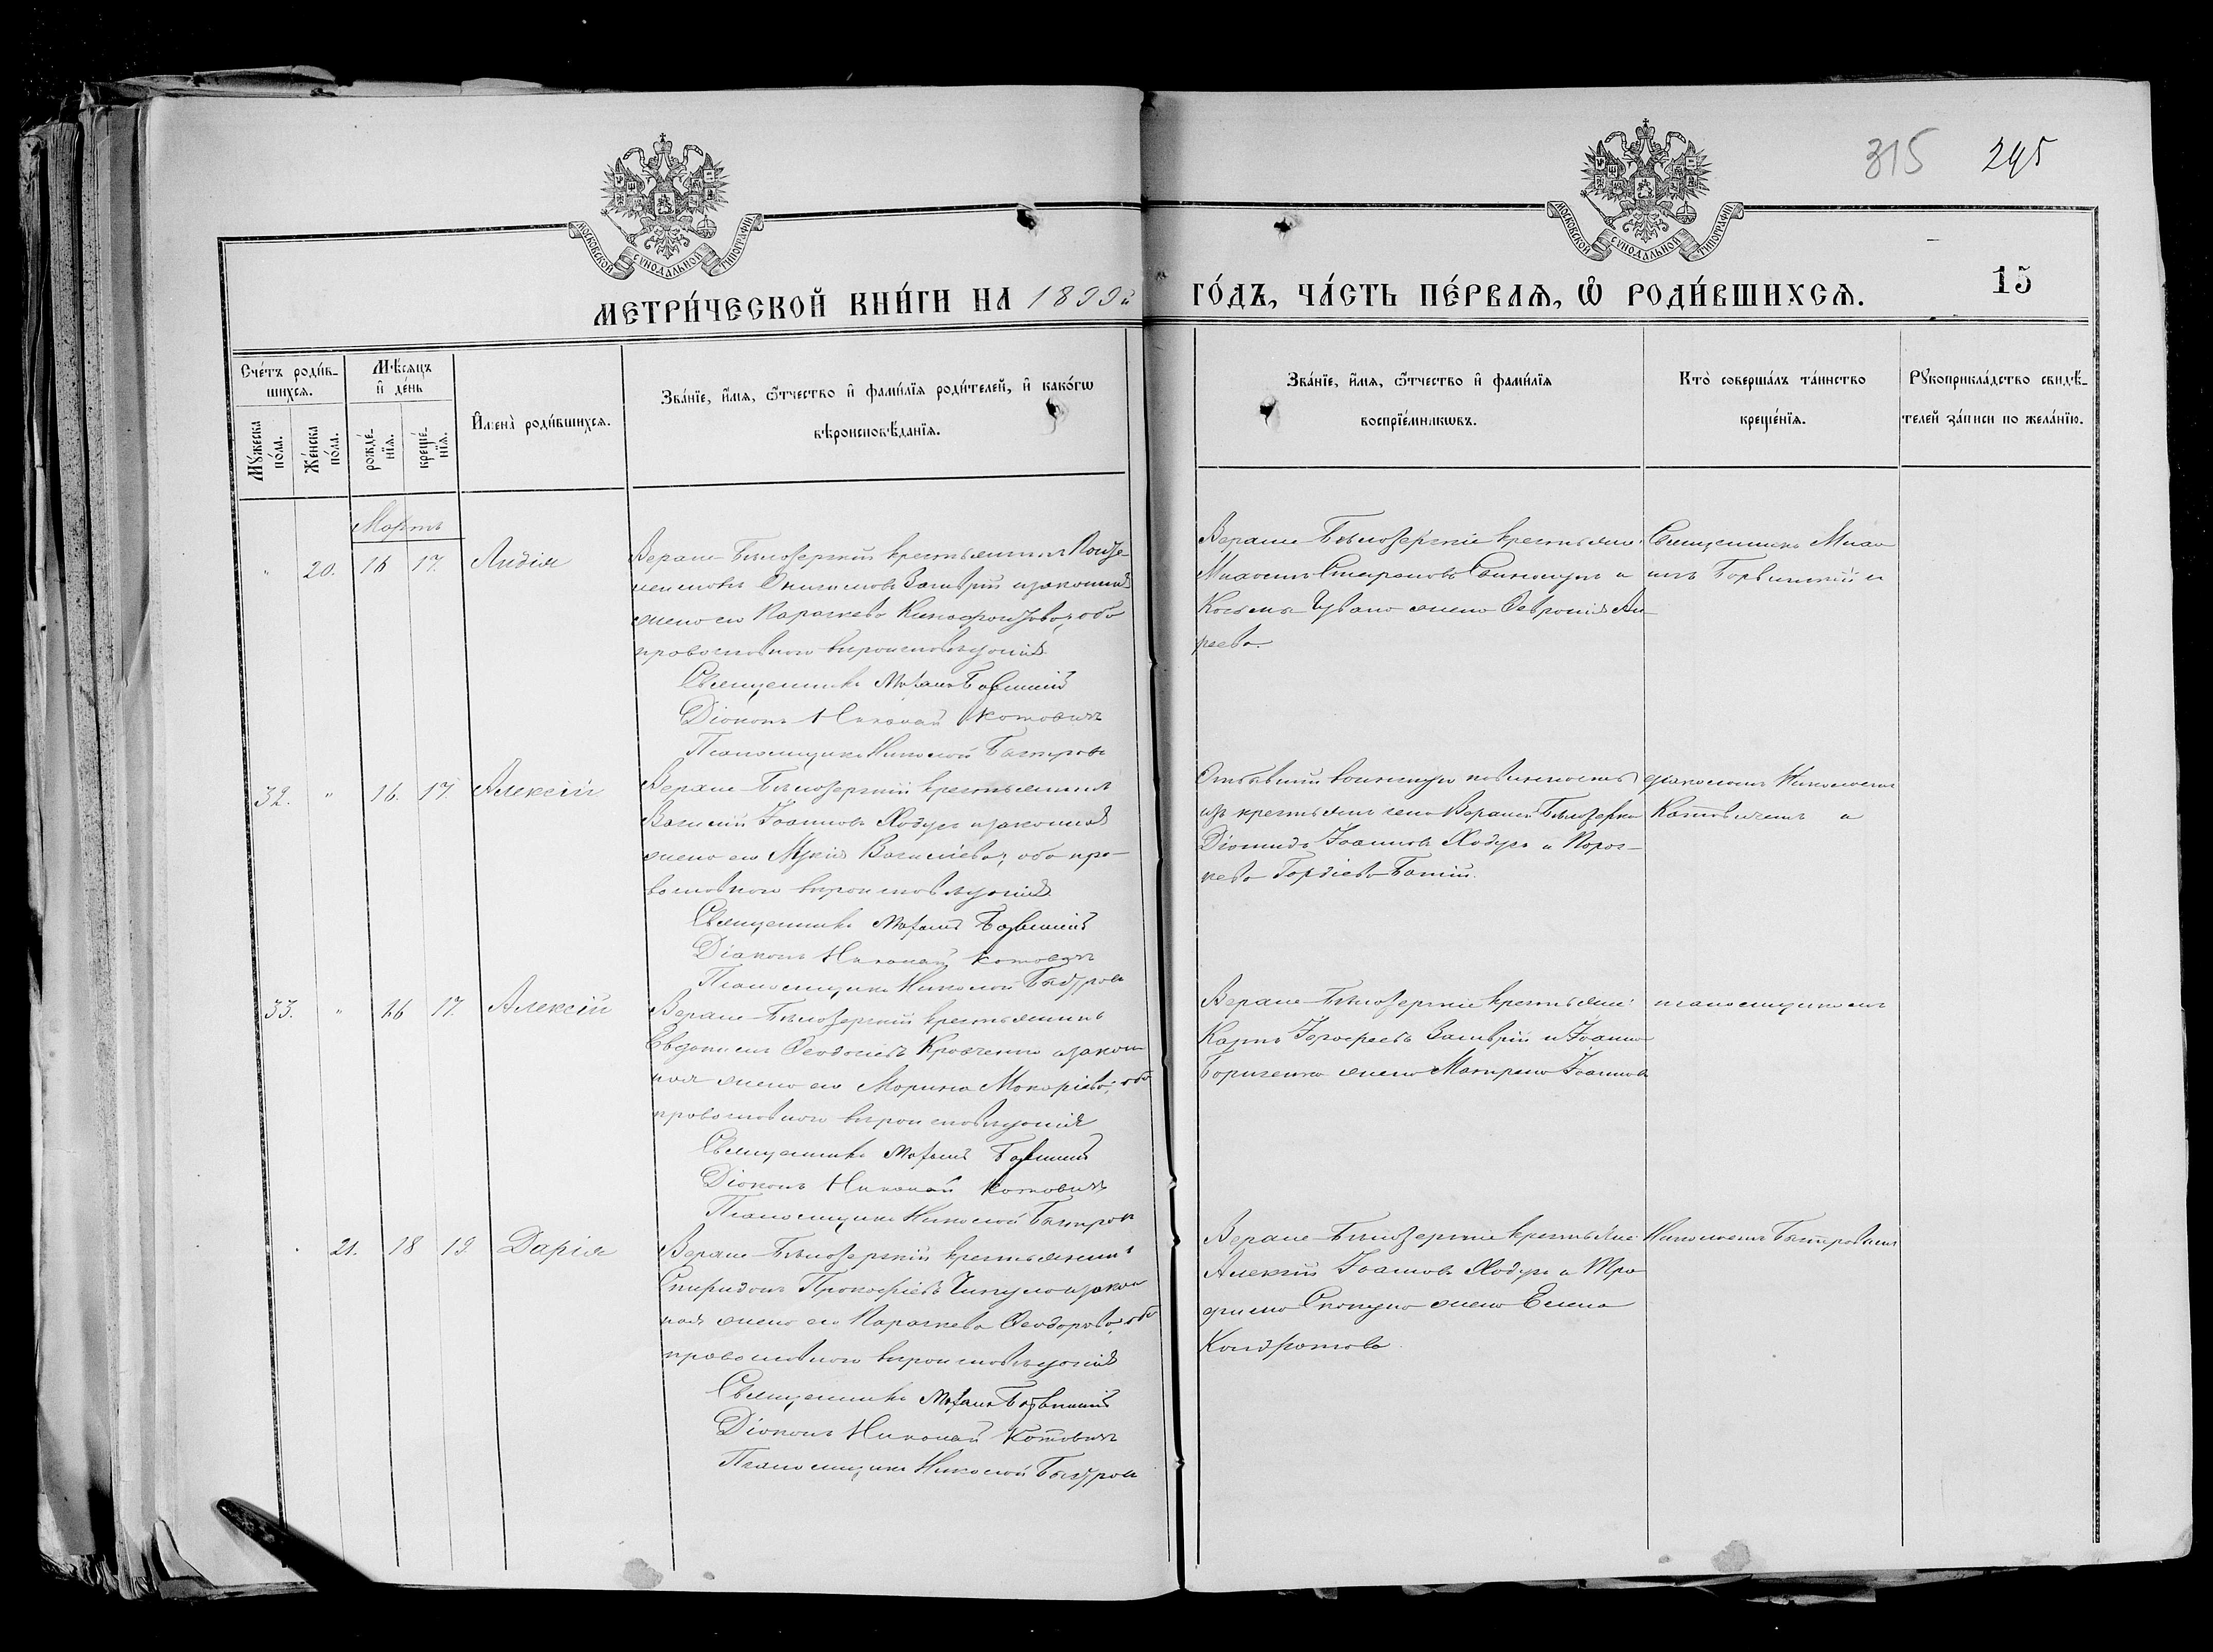 315 295
МОСКОВСКОЙ СУНОДАЛЬНОЙ ТИПОГРАФІИ
МОСКОВСКОЙ СУНОДАЛЬНОЙ ТИПОГРАФІИ
МЕТРИ́ЧЕСКОЙ КНИ́ГИ НА 1899й ГО́ДЪ, ЧА́СТЬ ПЕ́РВАѦ, Ѡ РОДИ́ВШИХСѦ. 15
Сче́тъ роди́в-
шихсѧ.
Мѣ́сѧцъ
и де́нь
Мꙋ́жеска
по́ла.
Же́нска
по́ла.
рожде́-
нїѧ.
креще́-
нїѧ.
Имена̀ роди́вшихсѧ.
Зва́нїе, и́мѧ, ѻ́тчество и фами́лїѧ роди́телей, и како́гѡ
вѣроисповѣ́данїѧ.
Зва́нїе, и́мѧ, ѻ́тчество и фами́лїѧ
воспрїе́мникѡвъ.
Кто̀ соверша́лъ та́инство
креще́нїѧ.
Рꙋкоприкла́дство свидѣ́-
телей за́писи по жела́нїю.
Мартъ
" 20. 16 17. Лидія
Верхне-Бѣлозерскій крестьянинъ
Онисимовъ и законная
жена его Параскева оба
православнаго вѣроисповѣданія
Священникъ
Діаконъ Николай Котовичъ
Псаломщикъ Николай Быстровъ
Верхне-Бѣлозерскіе крестьяне:
и
Косьмы жена Февронія Ан-
реева.
Священникъ Миха-
илъ и
32. " 16. 17. Алексій
Верхне-Бѣлозерскій крестьянинъ
Василій Іоанновъ Ходусъ и законная
жена его Васильева, оба пра-
вославнаго вѣроисповѣданія
Священникъ
Діаконъ Николай Котовичъ
Псаломщикъ Николай Быстровъ
Отбывшій воинскую повинность
изъ крестьянъ села Верхней Бѣлозерки
Діомидъ Іоанновъ Ходусъ и Парас-
кева Гордіева
діакономъ Николаемъ
Котовичемъ и
33. " 16 17. Алексій
Верхне-Бѣлозерскій крестьянинъ
Евдокимъ Феодосіевъ Кравченко и закон-
ная жена его Марина Макаріева, оба
православнаго вѣроисповѣданія
Священникъ
Діаконъ Николай Котовичъ
Псаломщикъ Николай Быстровъ
Верхне-Бѣлозерскіе крестьяне:
Карпъ и Іоанна
Борисенка жена Матрена Іоаннова
псаломщикомъ
21. 18 19. Дарія
Верхне-Бѣлозерскій крестьянинъ
Спиридонъ Прокофіевъ и закон-
ная жена его Параскева Феодорова, оба
православнаго вѣроисповѣданія
Священникъ
Діаконъ Николай Котовичъ
Псаломщикъ Николай Быстровъ
Верхне-Бѣлозерскіе крестьяне:
Алексій Іоанновъ Ходусъ и Тро-
фима жена Елена
Кондратова.
Николаемъ Быстровымъ